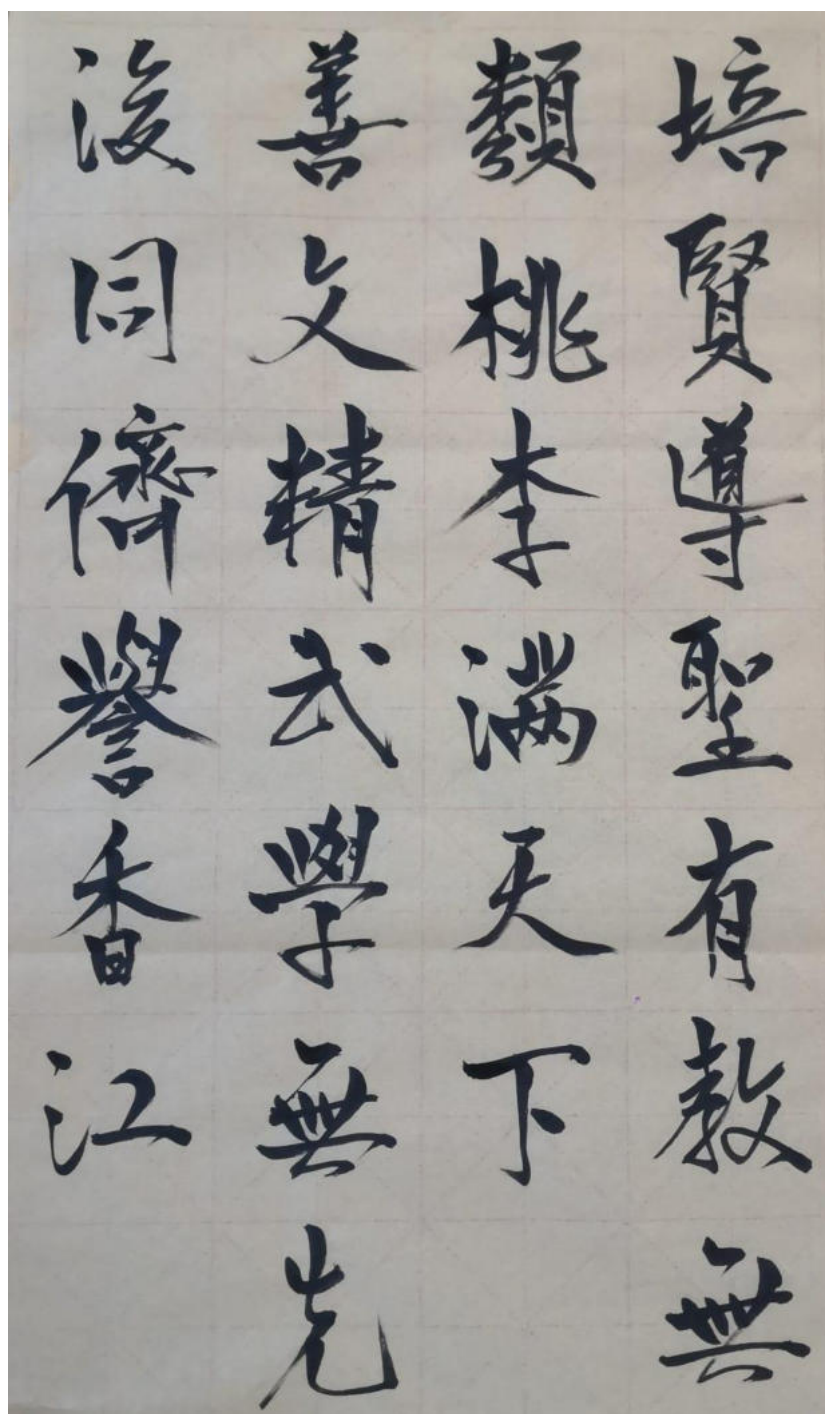 培賢導聖有教無
類桃李滿天下
善文精武學無先
後同儕譽香江